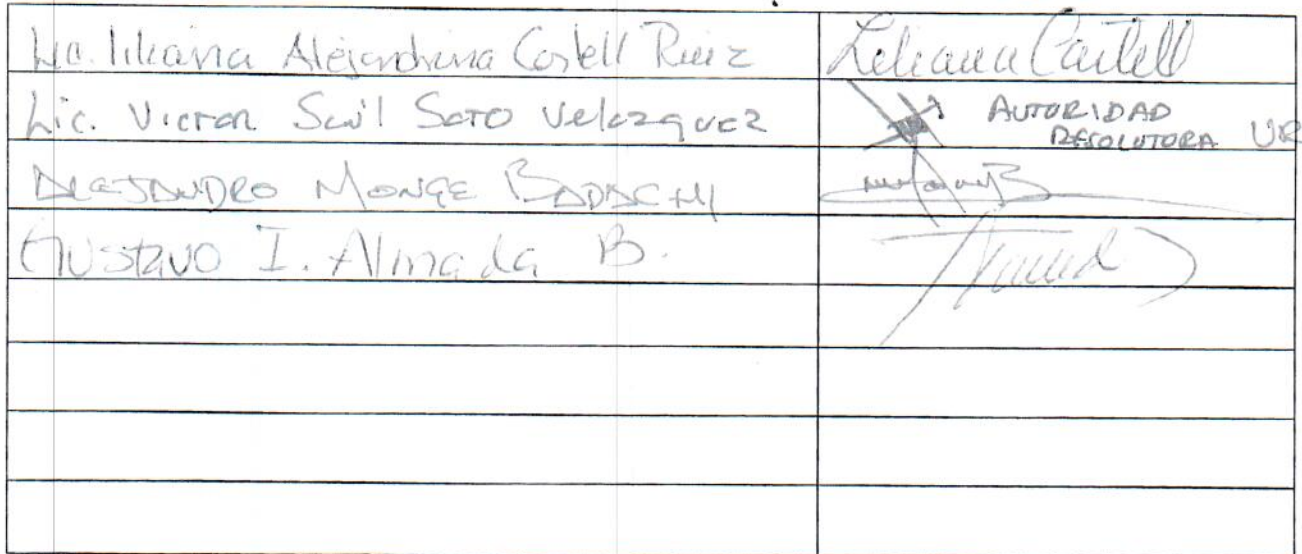 Lic. Liliana Alejandrina Castell Ruiz Liliana Castell
Lic. Victor Saúl Soto Velazquez AUTORIDAD
RESOLUTORA
ALEJANDRO MONGE
Gustavo I. Almada B.